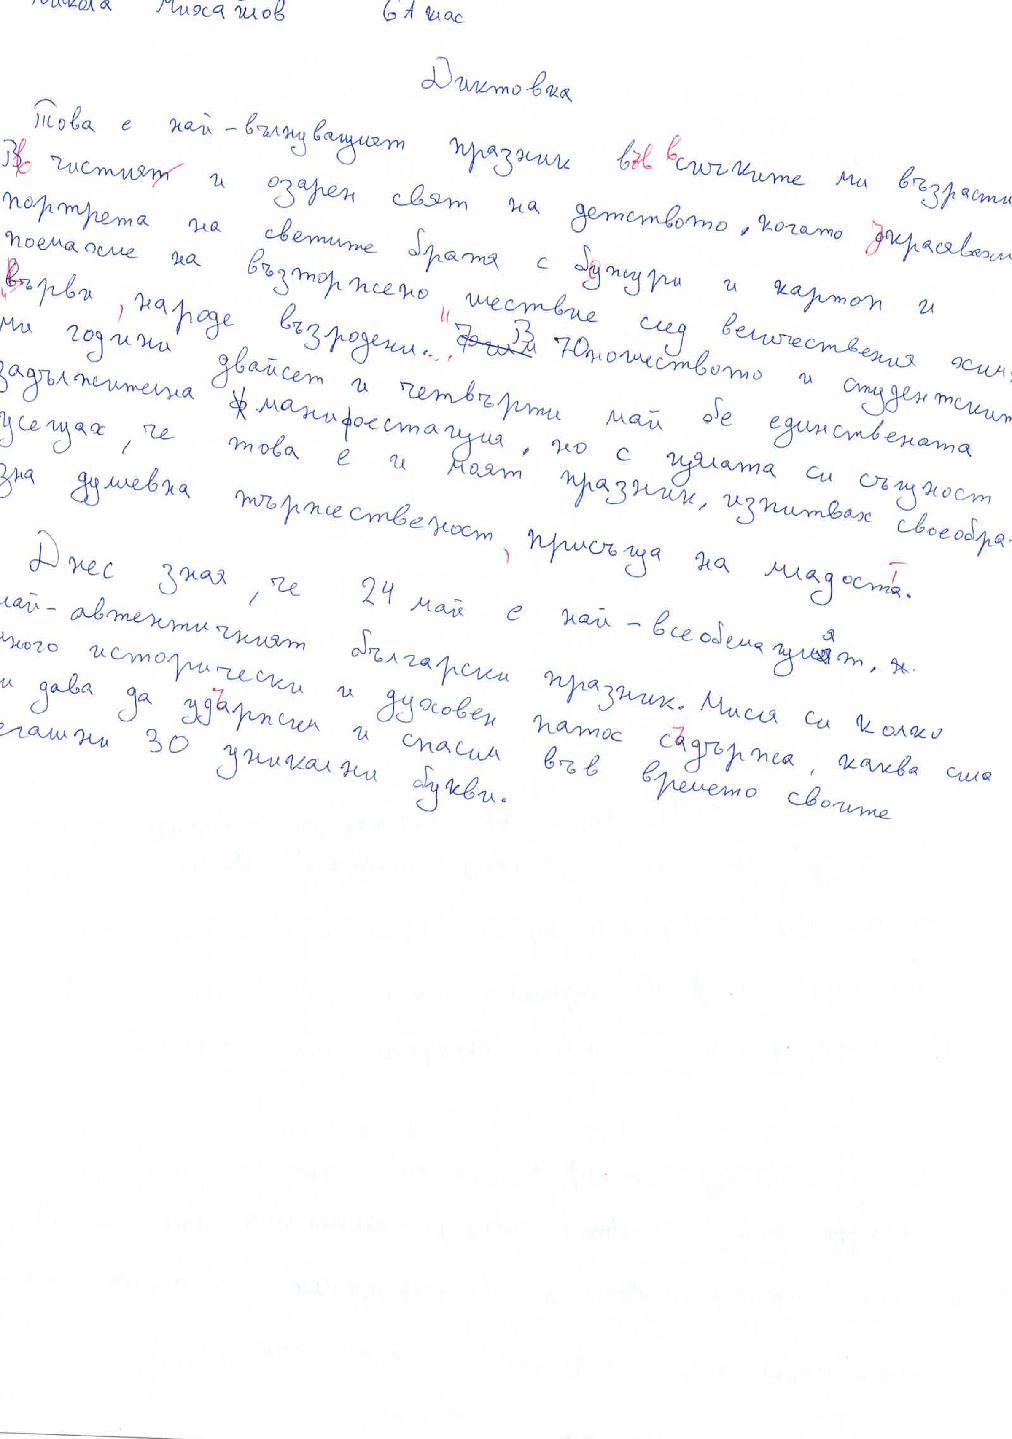 Никола Михайлов 6А клас
Диктовка
Това е най-вълнуващият празник във всичките ми възрасти.
В чистият и озарен свят на детството, когато украсявахме
портрета на светите братя с божури и картон и
поемахме на възторжено шествие след величествения химн
„Върви, народе възродени...". В Юношеството и студентските
ми години двайсет и четвърти май бе единствената
задължителна манифестация, но с цялата си същност
усещах, че това е и моят празник, изпитвах своеобра-
зна душевна тържественост, присъща на младостта.
Днес зная, че 24 май е най-всеобемащият,
най-автентичният български празник. Мисля си колко
много исторически и духовен патос съдържа, каква сила
ни дава да удържим и спасим във времето своите
сегашни 30 уникални букви.